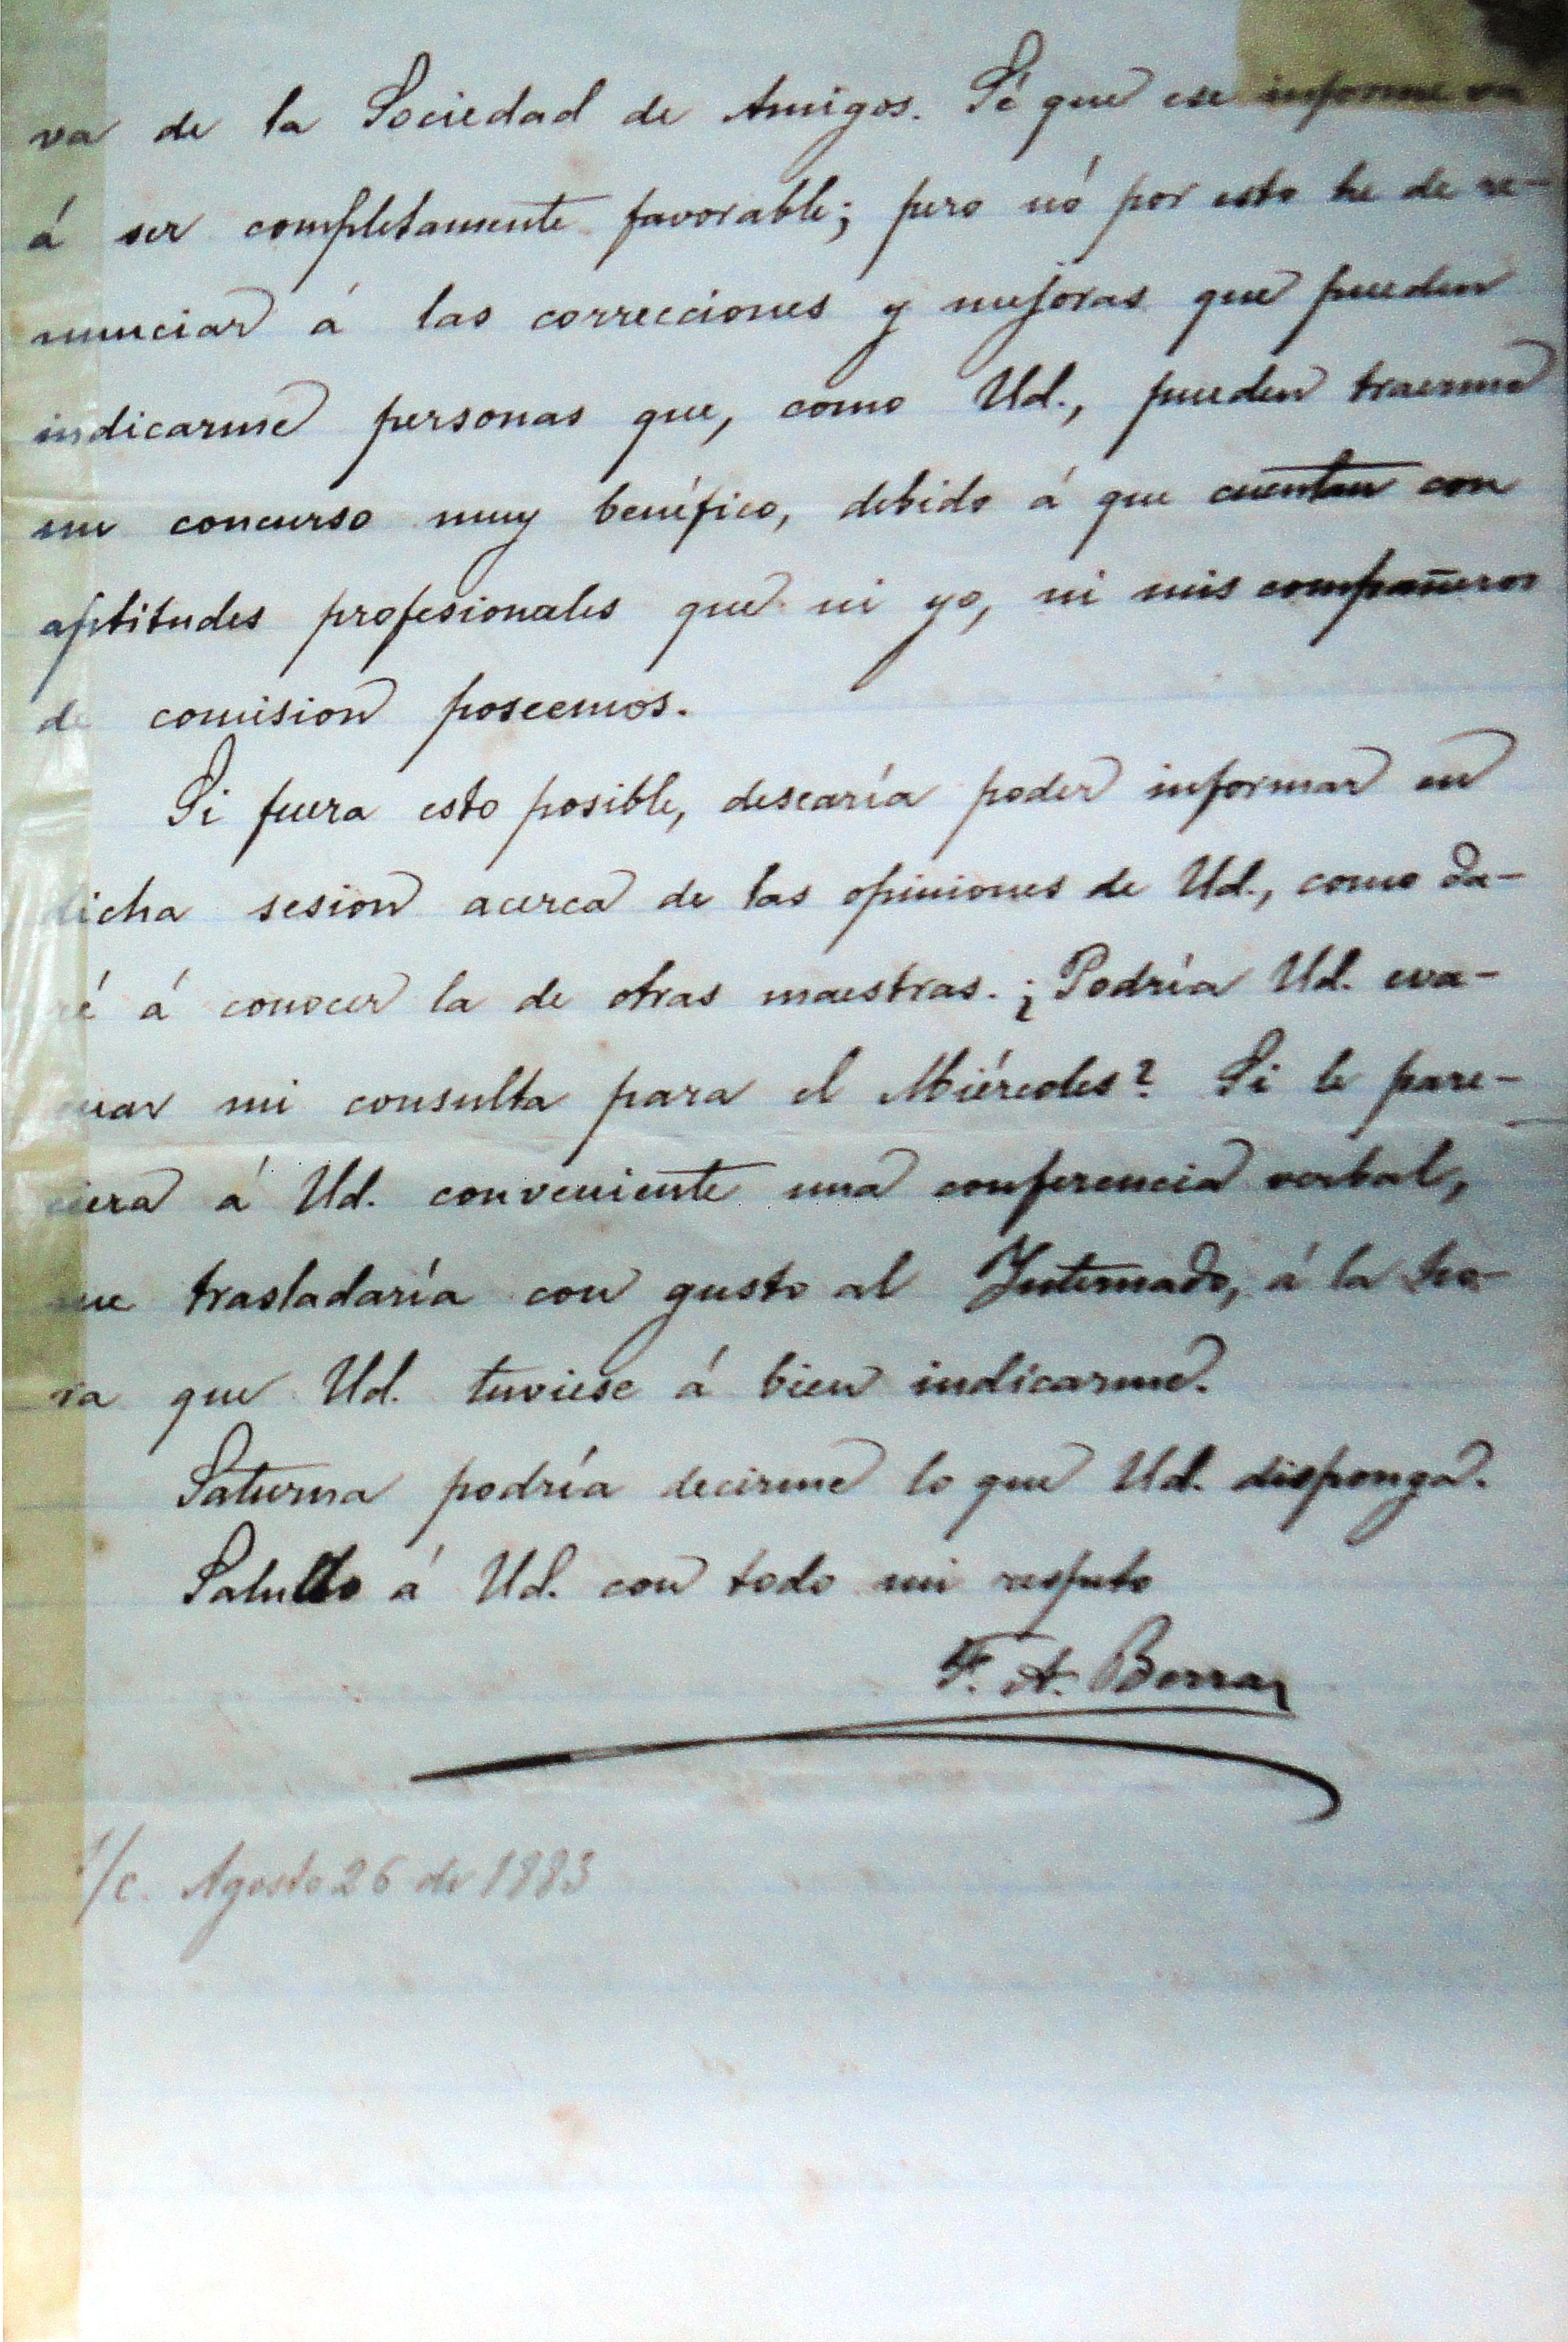 va de la Sociedad de Amigos. Sé que ese informe va
á ser completamente favorable; pero nó por esto he de re-
nunciar á las correcciones y mejoras que pueden
indicarme personas que, como Ud., pueden traerme
un concurso muy benéfico, debido á que cuentan con
aptitudes profesionales que ni yo, ni mis compañeros
de comision poseemos.
Si fuera esto posible, desearía poder informar en
dicha sesion acerca de las opiniones de Ud., como da-
ré á conocer la de otras maestras. ¿Podría Ud. eva-
cuar mi consulta para el Miércoles? Si le pare-
ciera á Ud. conveniente una conferencia verbal,
me trasladaría con gusto al Internado, á la ho-
ra que Ud. tuviese á bien indicarme.
Saturna podría decirme lo que Ud. disponga.
Saludo á Ud. con todo mi respeto
F. A. Berra
S/c. Agosto 26 de 1883